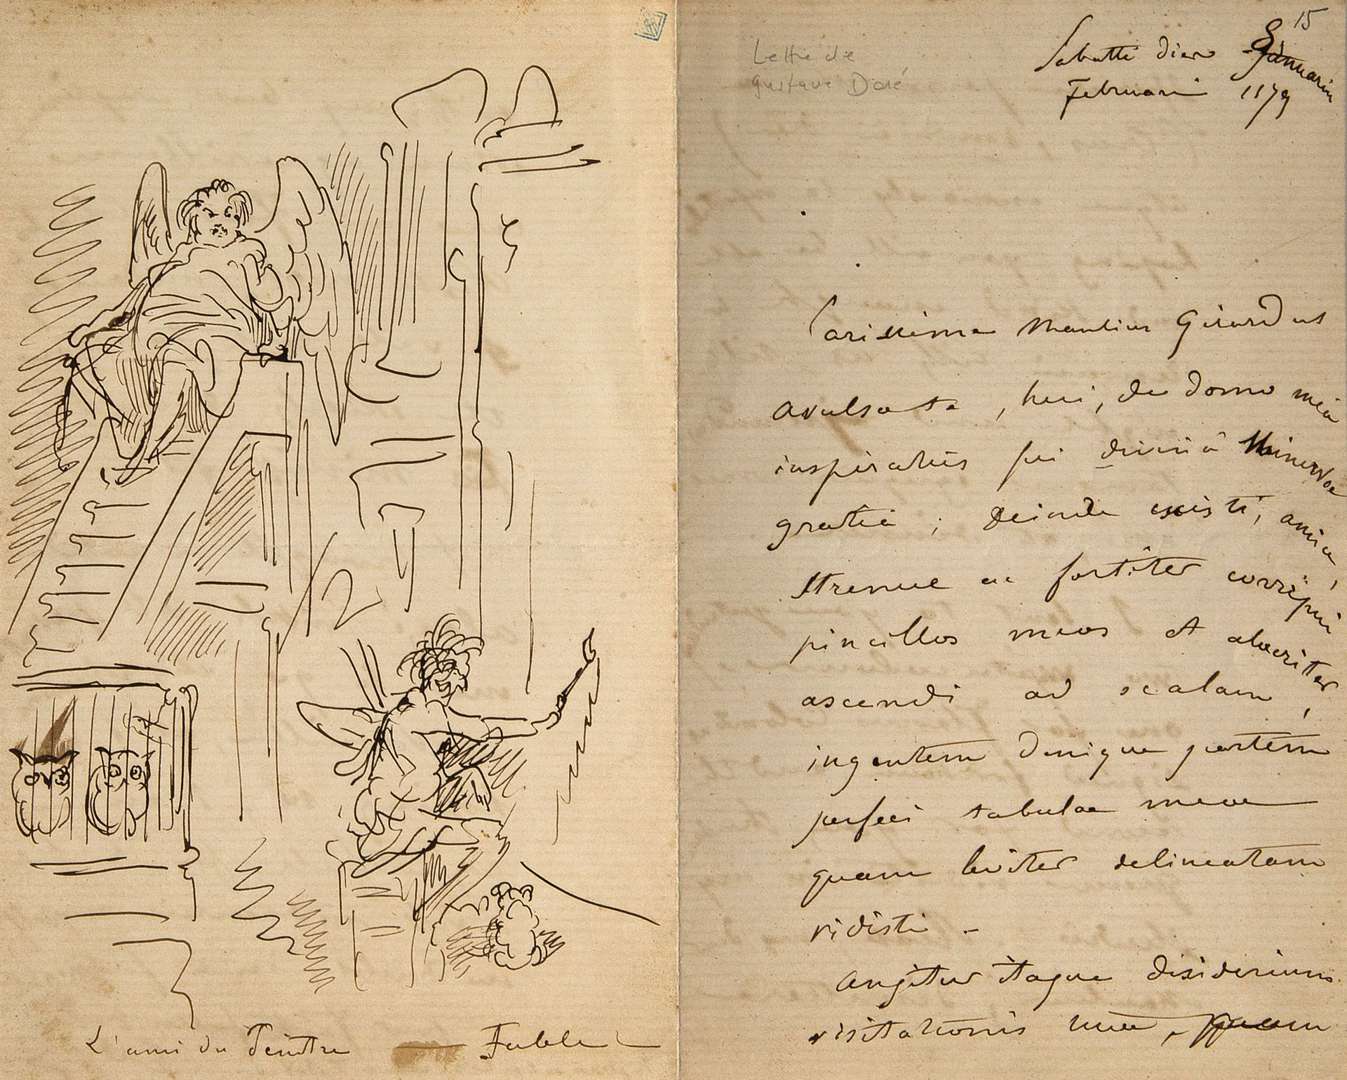 L'ami du Peintre Fable
15
Lettre de
Gustave Doré
Sabatti diero 8 Januarii
Februarii 1179
Carissime Manlius Girardus
avulsa te, heu, de domo mea
inspiratus fui divinâ Minervae
gratiâ; deinde existi, amice,
strenue ac fortiter corripui
pincillos meos et alacriter
ascendi ad scalam,
ingentem denique partem
perfeci tabulae meae
quam leviter delineatam
vidisti -
Angitur itaque desiderium
visitationis tuae, quam